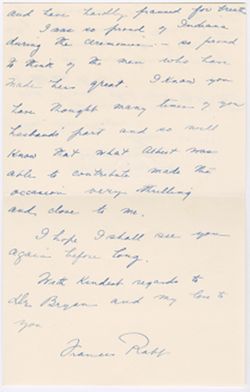 and have hardly paused for breath
I was so proud of Indiana
during the ceremonies - so proud
to think of the men who have
made her great. I know you
have thought many times of your
husband's part and so will
know that what Albert was
able to contribute made the
occasion very thrilling
and close to me.
I hope I shall see you
again before long.
With kindest regards to
Dr. Bryan and my love to
you
Frances Rabb